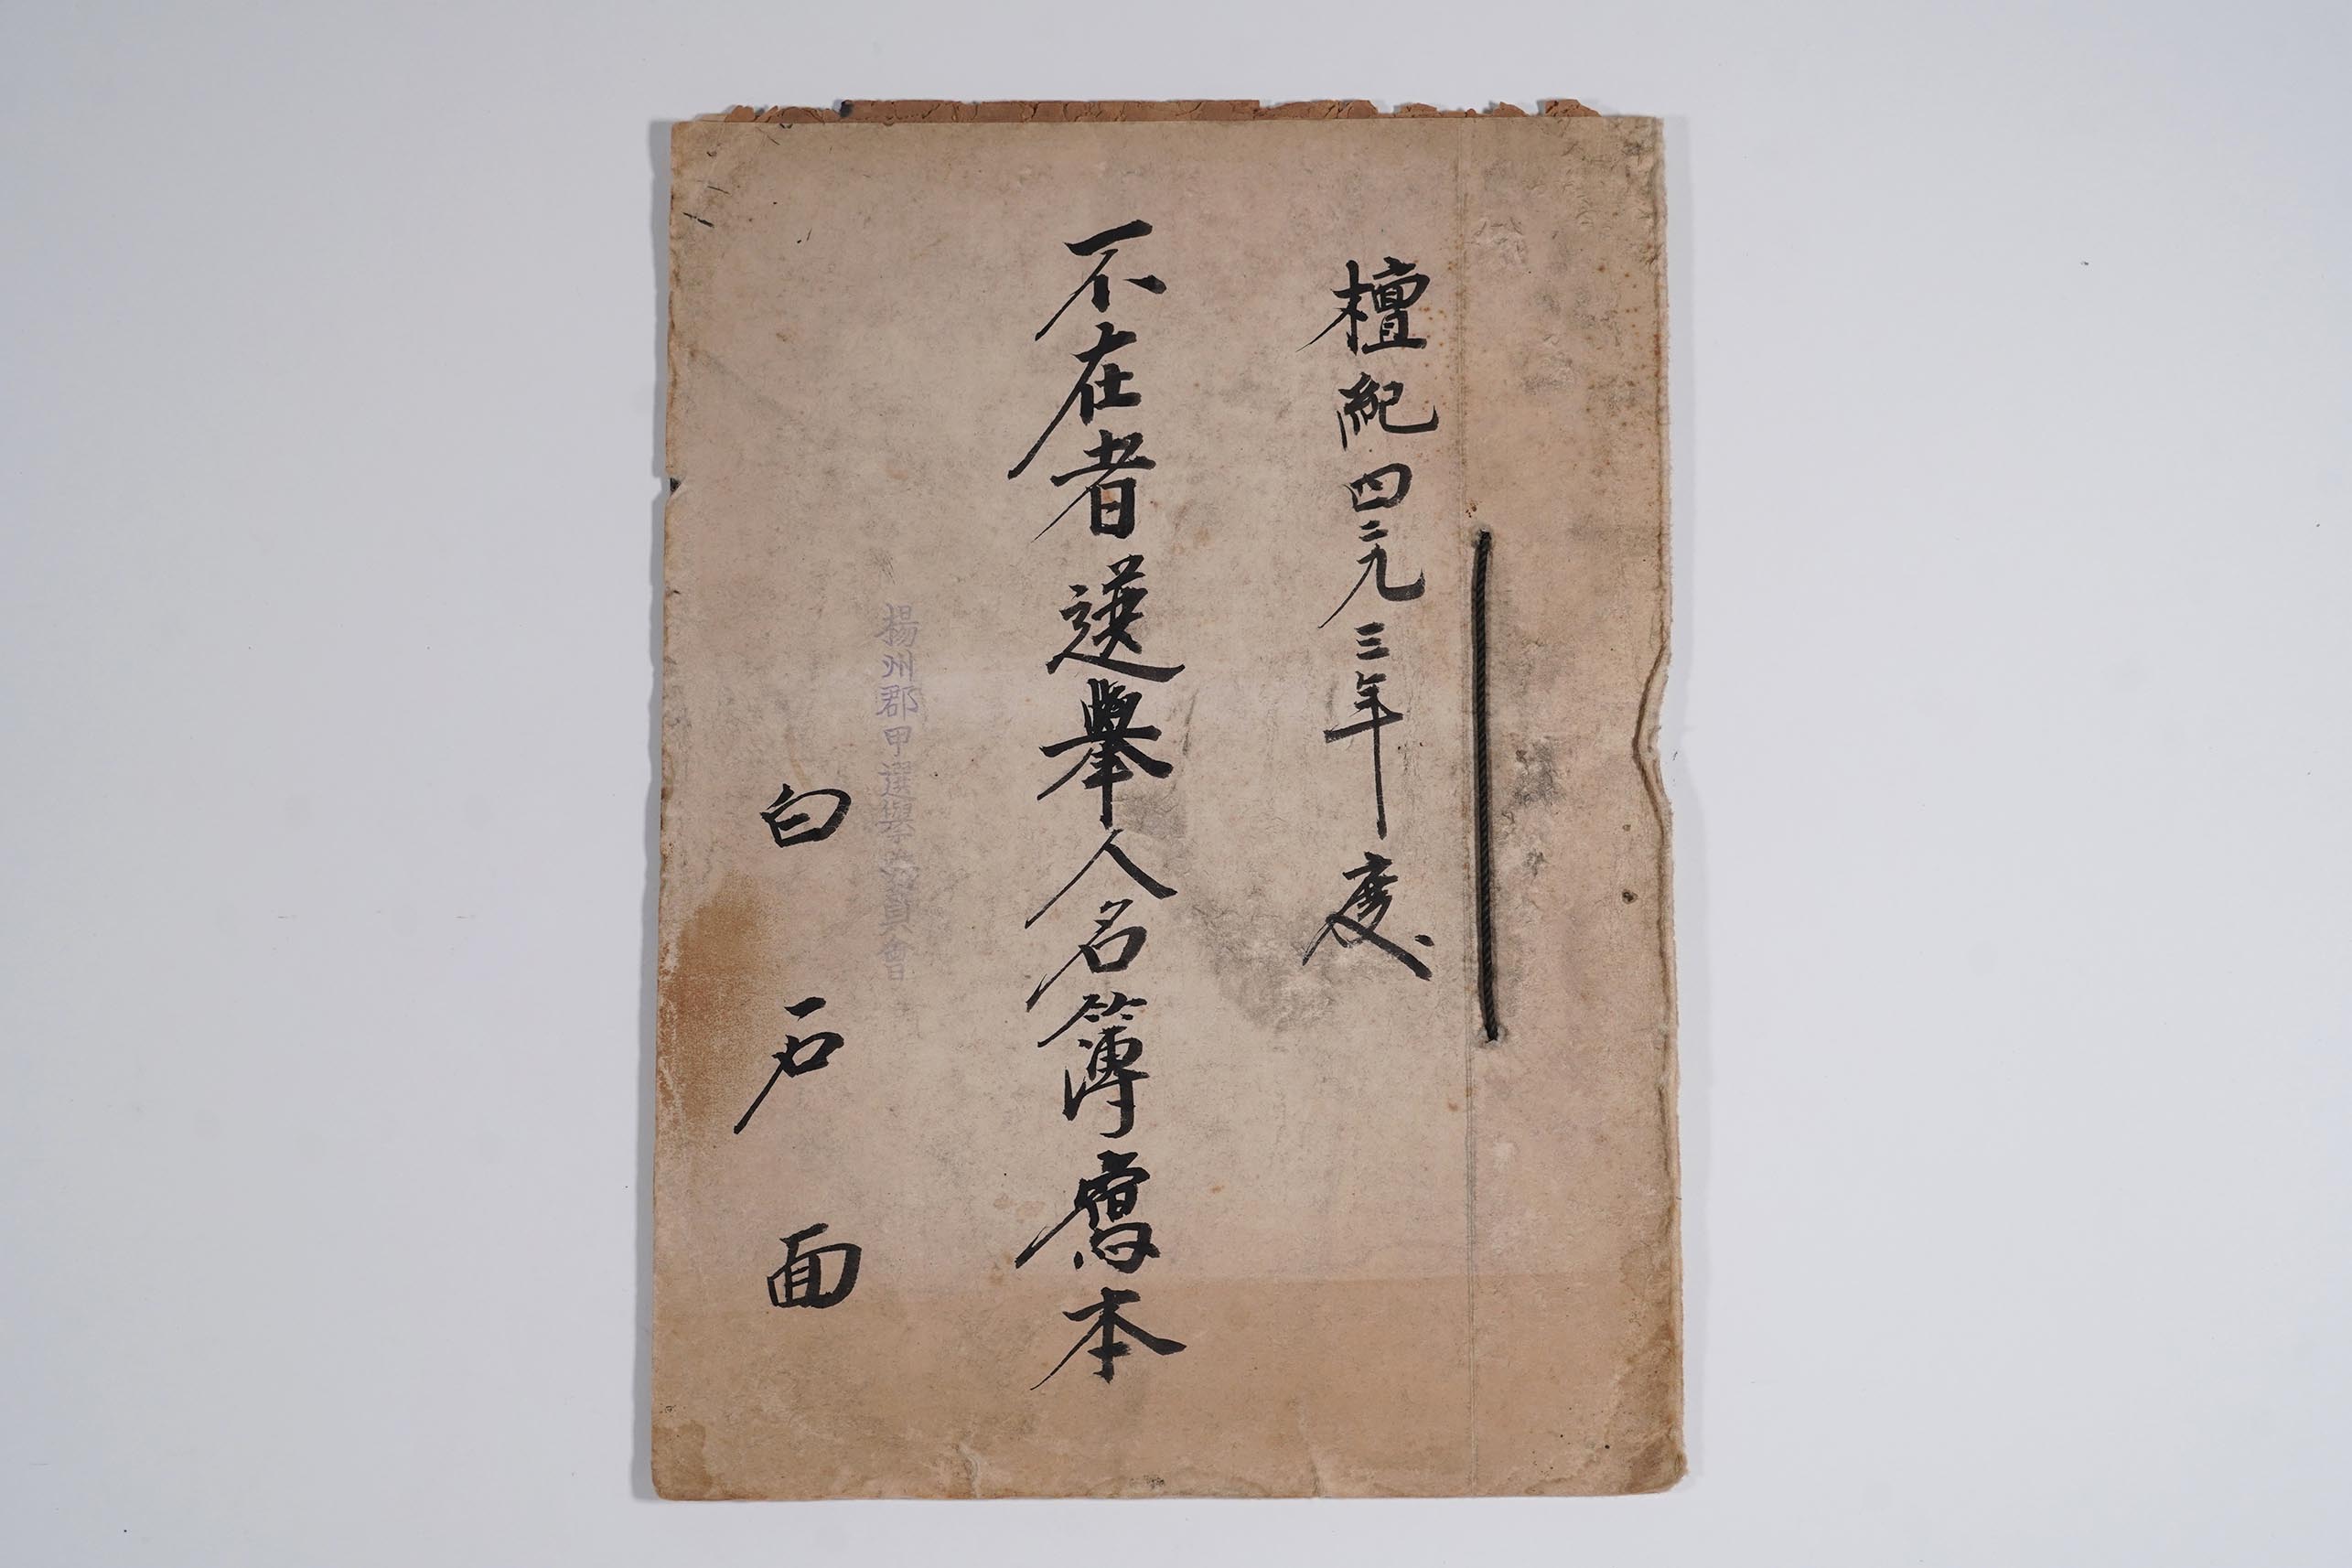 檀紀四二九三年度
不在者選擧人名簿寫本
揚州郡甲選擧委員會
白石面